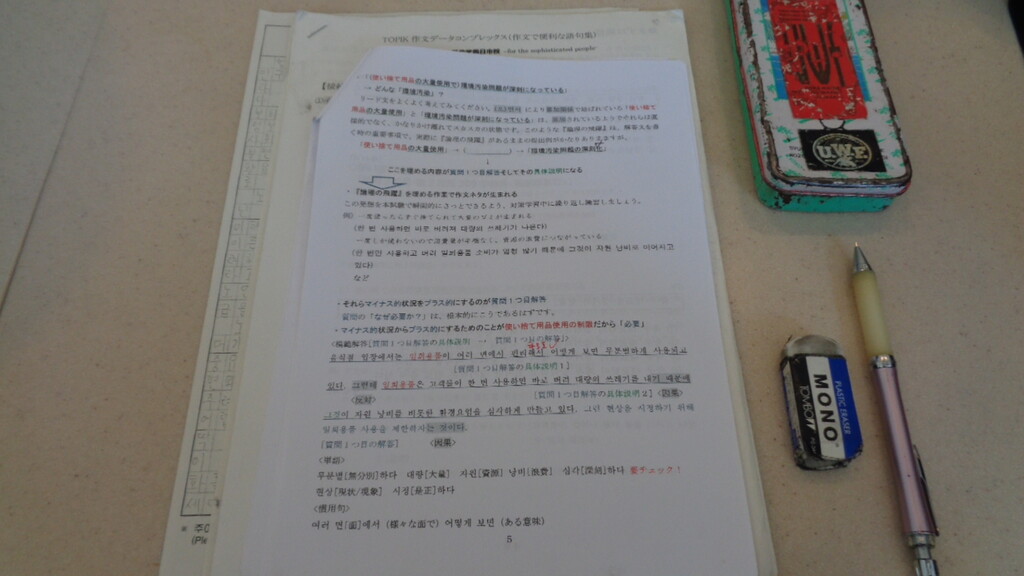 TOPIK 作文データコンプレックス(作文で便利な語句集)
-for the sophisticated people-
・「(使い捨て用品の大量使用で)環境汚染問題が深刻になっている」
⇒ どんな「環境汚染」?
リード文をよくよく考えてみてください。
用品の大量使用」と「環境汚染問題が深刻になっている」は、
「使い捨て用品の大量使用」→( )→「環境汚染問題の深刻化」
↓
ここを埋める内容が質問1つ目解答そしてその具体説明になる
・『論理の飛躍』を埋める作業で作文ネタが生まれる
この発想を本試験で瞬間的にさっとできるよう、対策学習中に繰り返し練習しましょう。
例) 一度使ったらすぐ捨てられて大量のゴミが生まれる
(한 번 사용하면 바로 버려져 대량의 쓰레기가 나온다)
一度しか使わないので消費量が半端なく、資源の浪費につながっている
(한 번만 사용하고 버려 일회용품 소비가 엄청 많기 때문에 그것이 자원 낭비로 이어지고
있다)
など
・それらマイナス的状況をプラス的にするのが質問1つ目解答
質問の「なぜ必要か?」は、根本的にこうであるはずです。
・マイナス的状況からプラス的にするためのことが使い捨て用品使用の制限だから「必要」
<模範解答[質問1つ目解答の具体説明 → 質問1つ目の解答]>
음식점 입장에서는 일회용품이 여러 면에서 편리해서 어떻게 보면 무분별하게 사용되고
[質問1つ目解答の具体説明1]
있다. 그런데 일회용품은 고객들이 한 번 사용하면 바로 버려 대량의 쓰레기를 내기 때문에
<反対> [質問1つ目解答の具体説明2] <因果>
그것이 자원 낭비를 비롯한 환경오염을 심각하게 만들고 있다. 그런 현상을 시정하기 위해
일회용품 사용을 제한하자는 것이다.
[質問1つ目の解答] <因果>
<単語>
무분별[無分別]하다 대량[大量] 자원[資源] 낭비[浪費] 심각[深刻]하다 要チェック!
현상[現状/現象] 시정[是正]하다
<慣用句>
여러 면[面]에서 (様々な面で) 어떻게 보면 (ある意味)
5
UWF
PLASTIC ERASER
MONO
TOMBOW